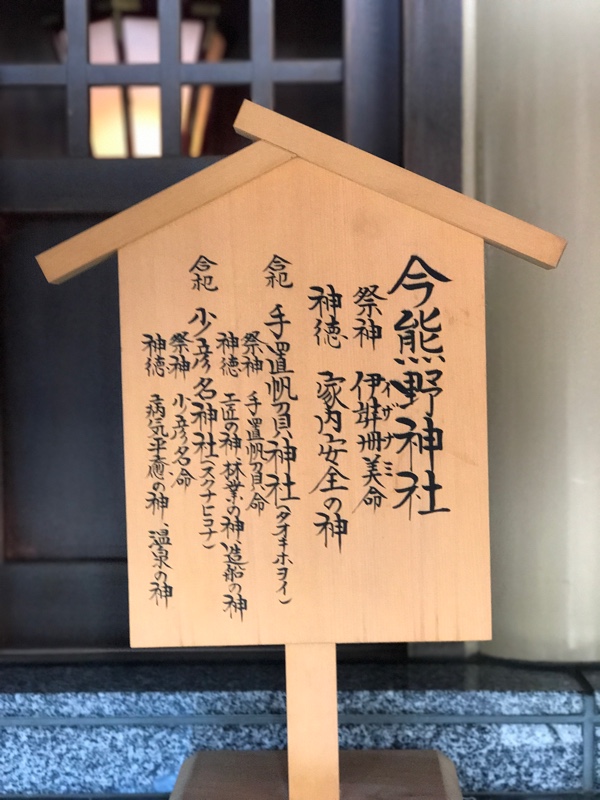 今熊野神社
祭神 伊弉冊美命
イザナミ
神徳 家内安全の神
合祀 手置帆負神社(タオキホヲイ)
祭神 手置帆負命
神徳 工匠の神 林業の神 造船の神
合祀 少彦名神社(スクナヒコナ)
祭神 少彦名命
神徳 病気平癒の神、温泉の神